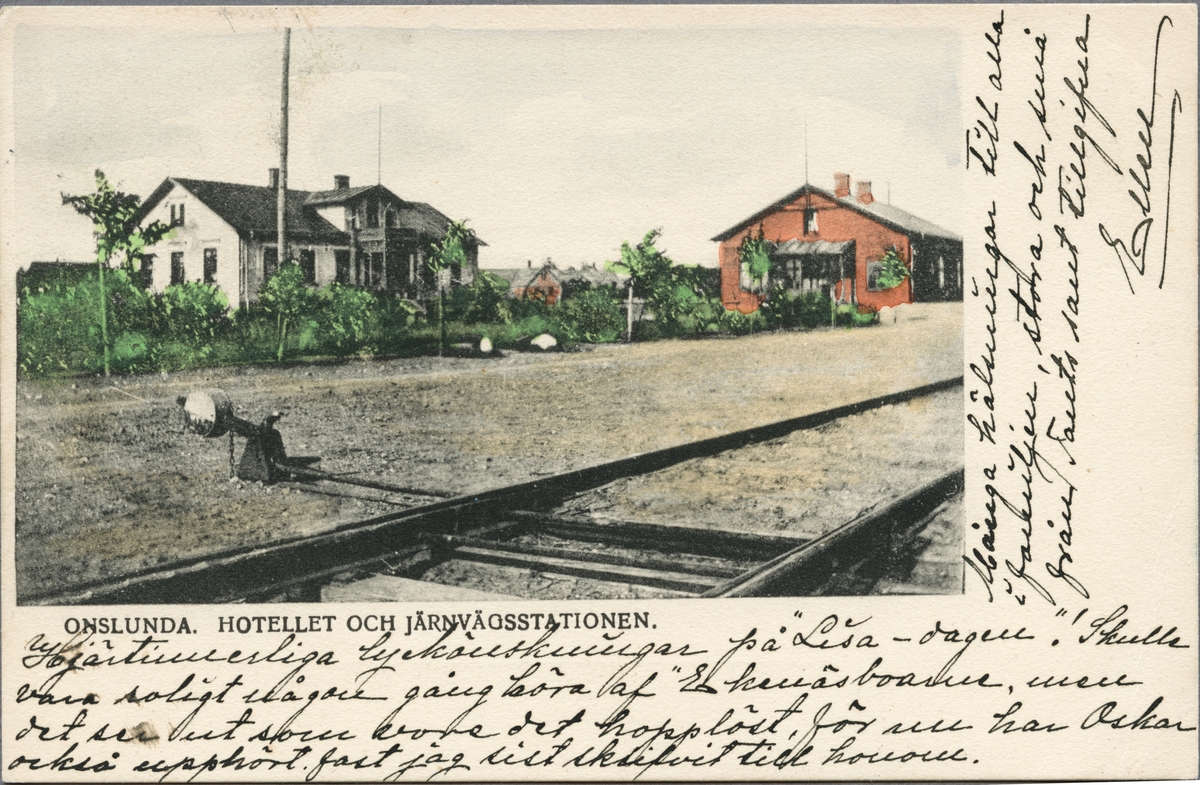 ONSLUNDA. HOTELLET OCH JÄRNVÄGSSTATIONEN.
Hjärtinnerliga lyckönskningar på "Lisa-dagen"! Skulle
vara roligt någon gång höra af Ekenäsboarne, men
det ser ut som vore det hopplöst, för nu har Oskar
också upphört. fast jag sist skrifvit till honom.
Många hälsningar till alla
i familjen, stora och små
från Tants samt tillgifna
Ellen